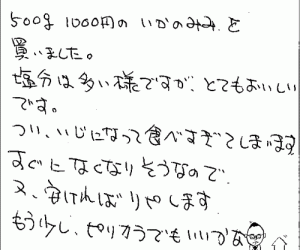 500g 1000円の いかのみみ を
買いました。
塩分は多い様ですが、とてもおいしい
です。
つい、いじになって食べすぎてしまいます
すぐに なくなりそうなので
又、安ければリピします
もう少し、ピリカラでもいいかな